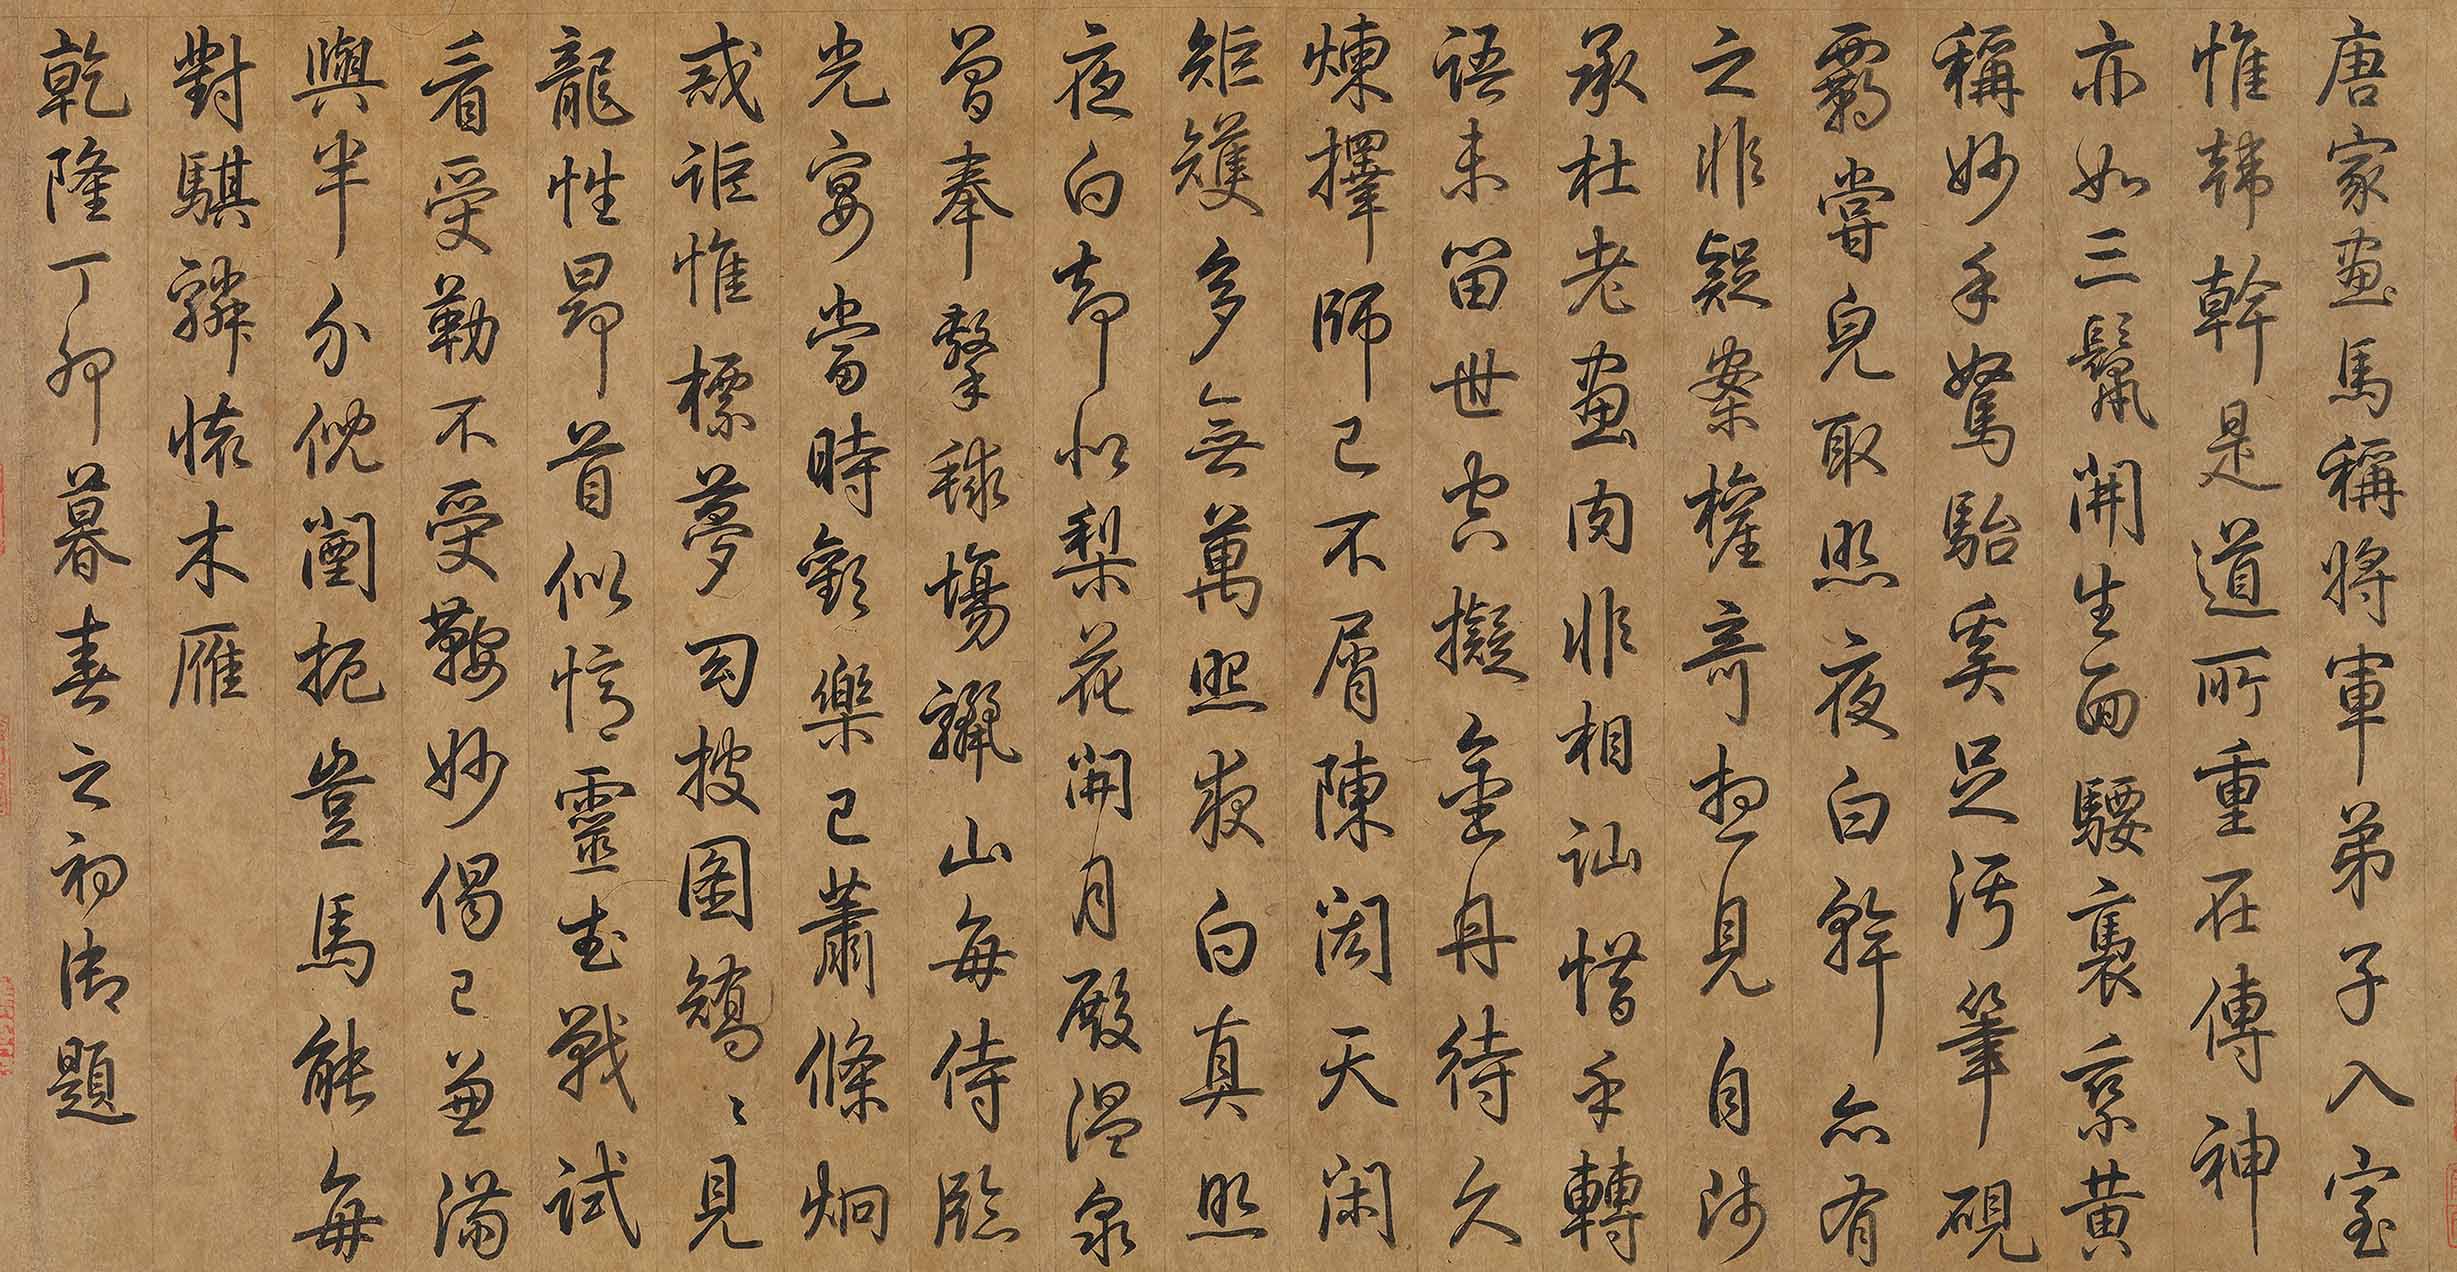 唐家畫馬稱將軍弟子入室
惟韓幹是道所重在傳神
亦如三鬣開生面騕褭乘黃
稱妙手駑駘奚足污筆硯
霸嘗皃取照夜白幹亦有
之非疑案權奇想見自師
承杜老畫肉非相訕惜乎轉
語未留世空擬金丹待久
煉擇師已不屑陳閎天閑
矩矱多無萬照夜白真照
夜白却似梨花開月殿溫泉
曾奉擊毬場驪山每侍臨
光宴當時歡樂已蕭條炯
戒詎惟標夢幻披圖矯〻見
龍性昂首似憶靈武戰試
看受勒不受鞍妙偈已兼滿
與半分倪闉扼豈馬能每
對騏驎懷木雁
乾隆丁卯暮春之初御題